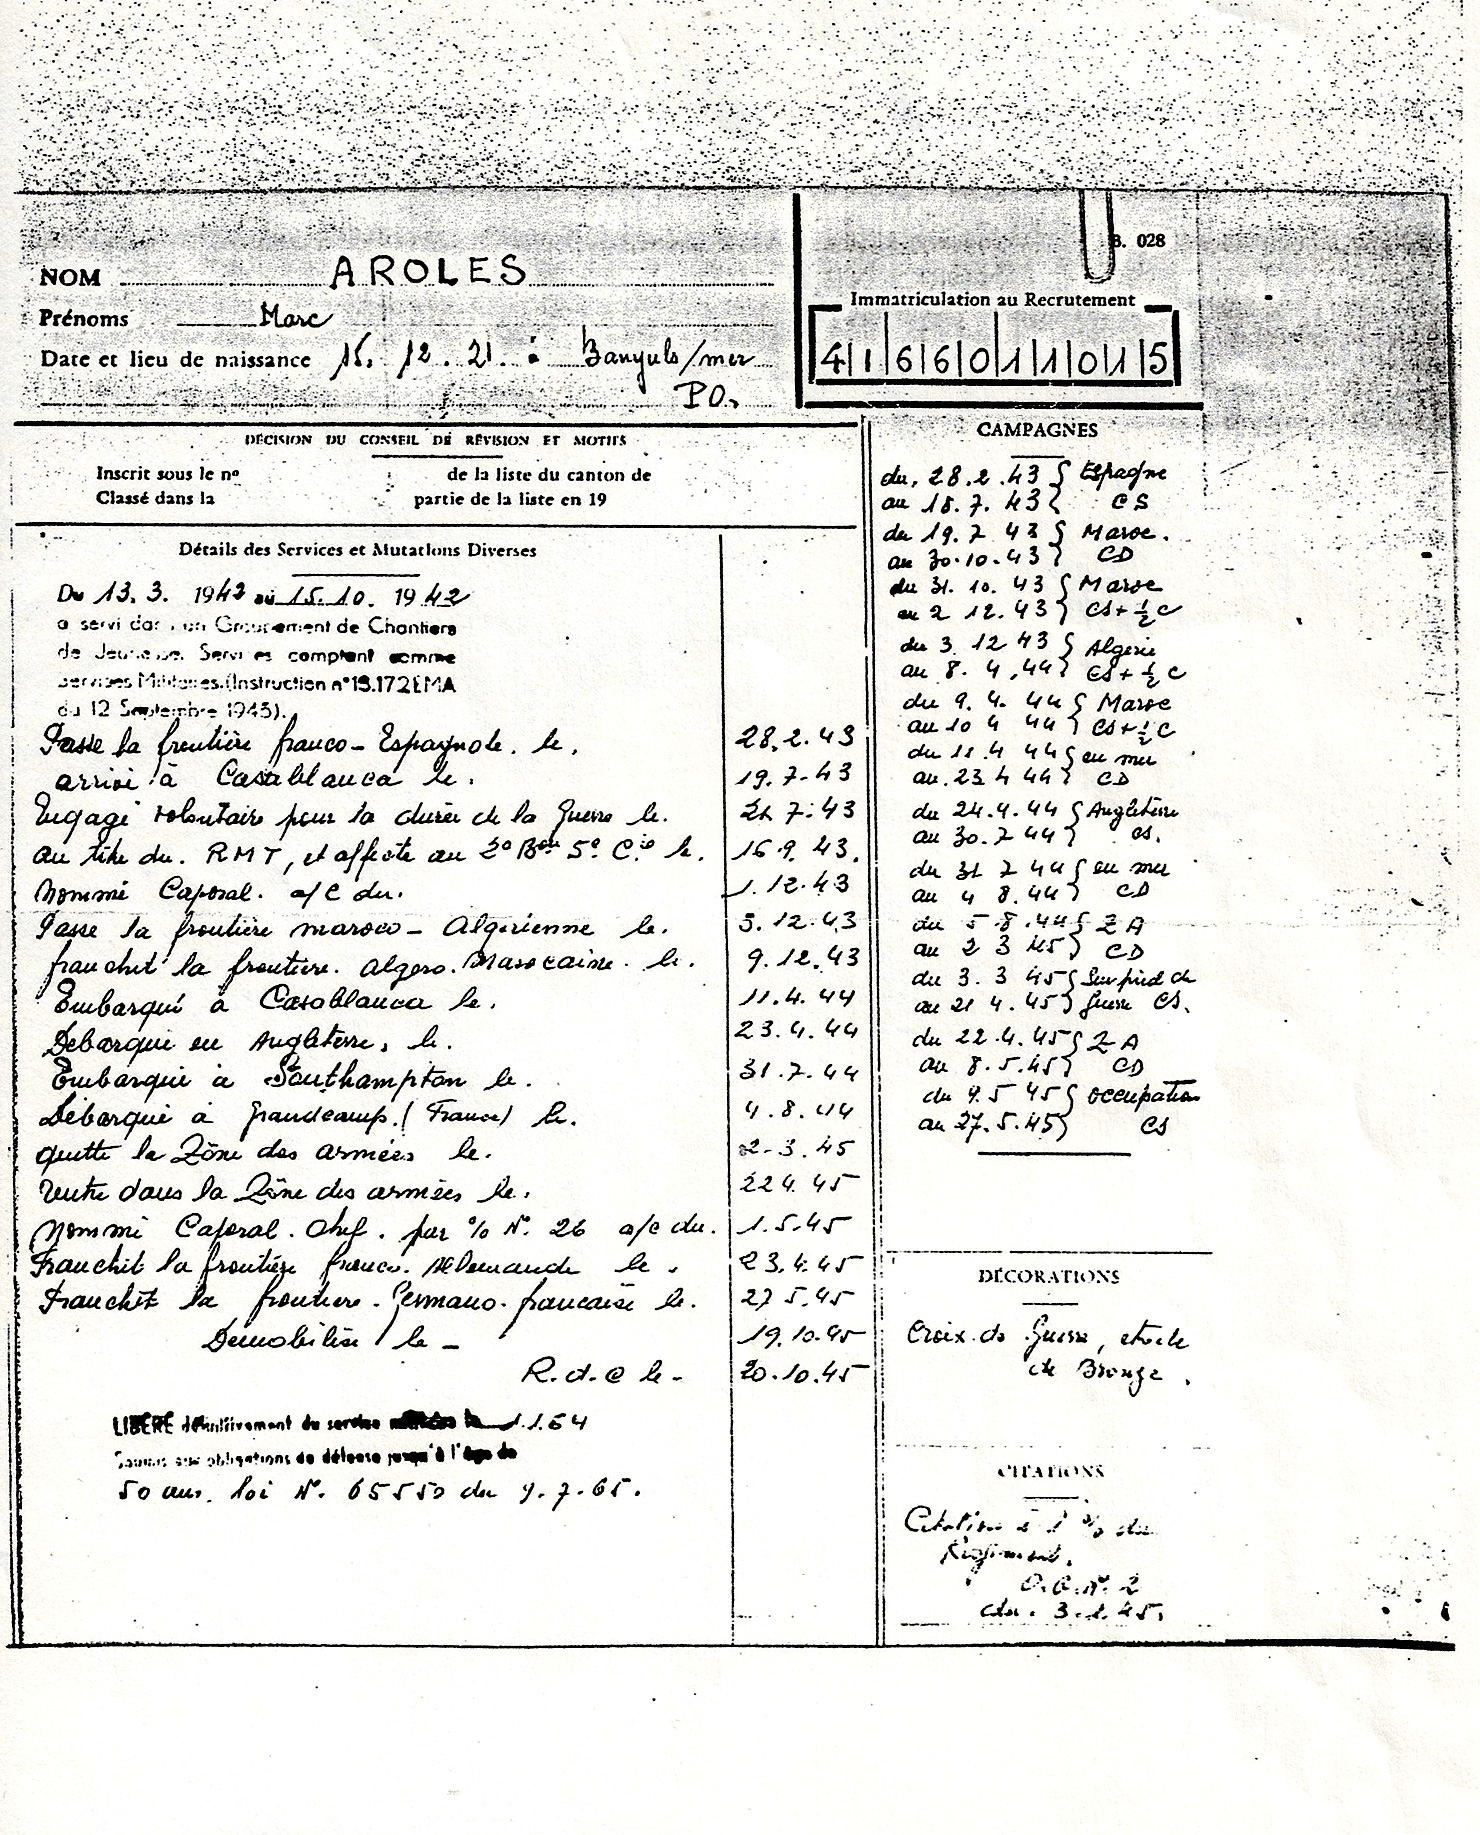 B. 028
NOM AROLES
Prénoms Marc
Date et lieu de naissance 15. 12. 21. à Banyuls/mer
P.O.
Immatriculation au Recrutement
4 1 6 6 0 1 1 0 1 5
DÉCISION DU CONSEIL DE RÉVISION ET MOTIFS
Inscrit sous le nº : de la liste du canton de
Classé dans la : partie de la liste en 19
Détails des Services et Mutations Diverses
Du 13. 3. 1942 au 15. 10. 1942
a servi dans un Groupement de Chantiers
de Jeunesse. Services comptent comme
Services Militaires. (Instruction nº 18.172 EMA
du 12 Septembre 1945).
Passe la frontière franco-Espagnole. le. 28.2.43
arrivé à Casablanca le. 19.7.43
Engagé volontaire pour la durée de la Guerre le. 21.7.43
au titre du. RMT, et affecté au 2º Bon 5º Cie le. 16.9.43.
Nommé Caporal. a/c du. 1.12.43
Passe la frontière maroco-Algérienne le. 3.12.43
franchit la frontière. Algero. Marocaine. le. 9.12.43
Embarqué à Casablanca le. 11.4.44
Débarqué en Angleterre, le. 23.4.44
Embarqué à Southampton le. 31.7.44
Débarqué à Grandcamp. (France) le. 4.8.44
quitte la Zône des armées le. 2-3.45
rentre dans la Zône des armées le. 22 4. 45
Nommé Caporal. Chef. par % Nº. 26 a/c du. 1.5.45
Franchit la frontière franco. Allemande le. 23.4.45
Franchit la frontière. Germano. française le. 27 5.45
Démobilisé le - 19.10.45
R.d.C le - 20.10.45
LIBÉRÉ définitivement du service le 1.1.64
Soumis aux obligations de défense jusqu'à l'âge de
50 ans. loi Nº. 65550 du 9.7.65.
CAMPAGNES
du. 28.2.43 } Espagne
au 18.7.43 } CS
du 19.7 43 } Maroc.
au 30.10.43 } CD
du 31. 10. 43 } Maroc
au 2 12.43 } CS+½C
du 3. 12 43 } Algérie
au 8. 4.44 } CS+½C
du 9. 4. 44 } Maroc
au 10 4 44 } CS+½C
du 11.4 44 } en mer
au. 23 4 44 } CD
du 24.4.44 } Angleterre
au 30.7 44 } CS.
du 31 7 44 } en mer
au 4 8.44 } CD
du 5 8.44 } ZA
au 2 3 45 } CD
du 3. 3 45 } Sur pied de
au 21 4.45 } guerre CS.
du 22.4.45 } ZA
au 8.5.45 } CD
du 9.5 45 } occupation
au 27.5.45 } CS
DÉCORATIONS
Croix de Guerre, étoile
de Bronze.
CITATIONS
Citation à l' % du
Régiment.
O.G. Nº 2
du. 3.1.45.